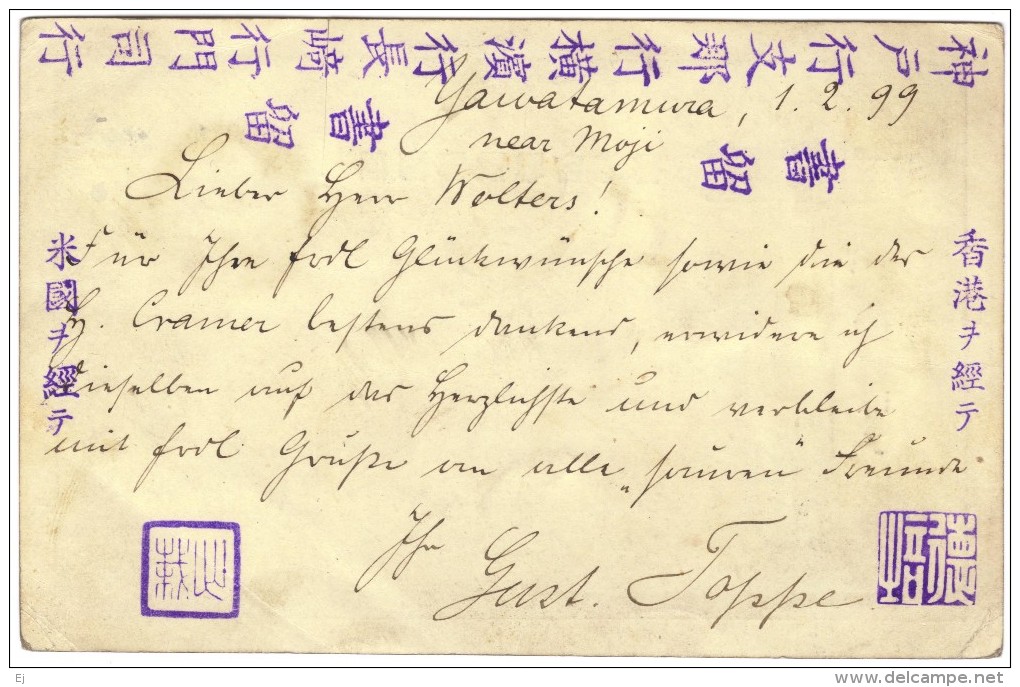 神戸行支那行横濱行長崎行門司行
Yawatamura, 1. 2. 99
near Moji
書留
書留
Lieber Herr Wolters!
Für Ihre frdl Glückwünsche sowie die des
H. Cramer bestens dankend, erwidere ich
dieselben auf das Herzlichste und verbleibe
mit frdl Grüße an alle „sauren" Freunde
Ihr
Gust. Toppe
米國ヲ經テ
香港ヲ經テ
Ej
www.delcampe.net